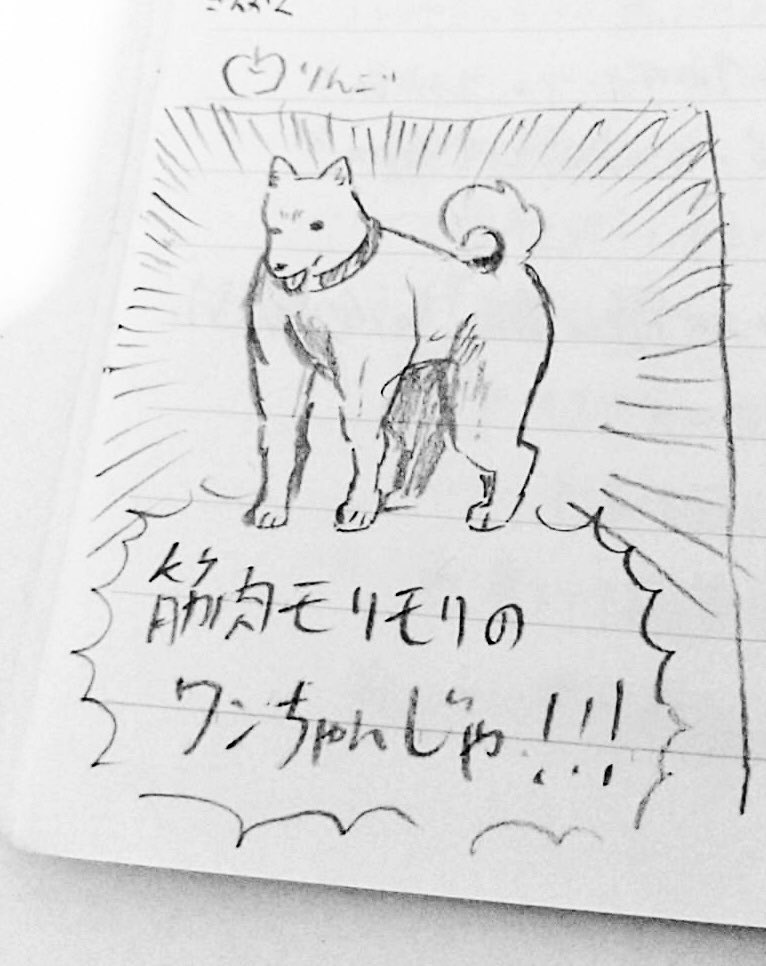 りんご
筋肉モリモリの
ワンちゃんじゃ!!!